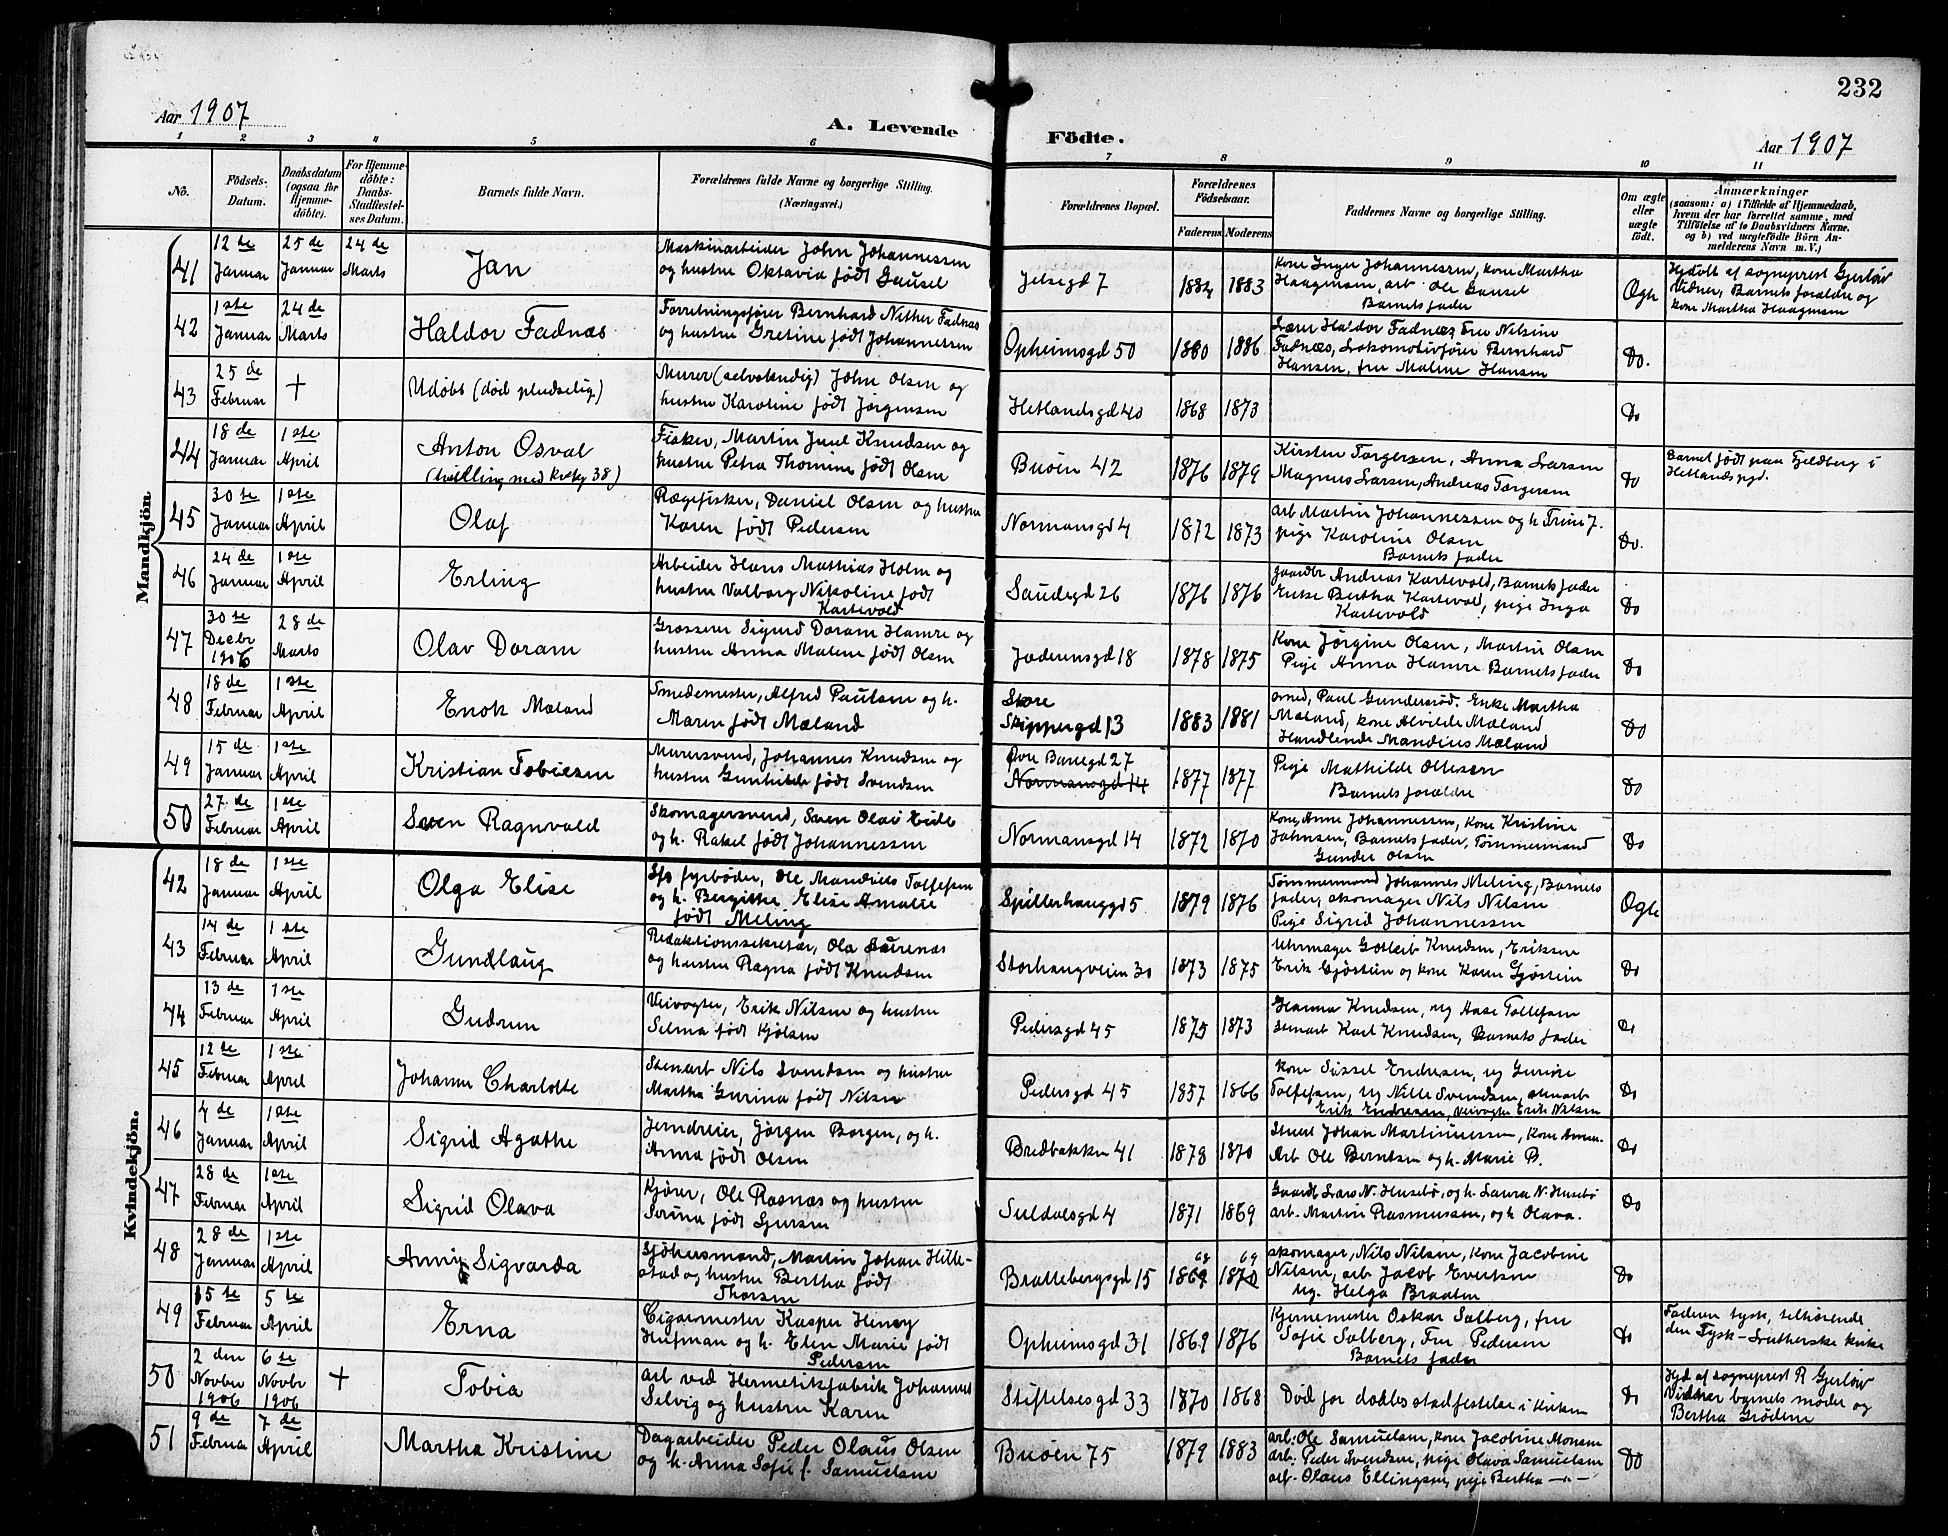 232
Aar 1907
A. Levende
Födte.
Aar 1907
1 2 3 4 5 6 7 8 9 10 11
No.
Födsels-
Datum.
Daabsdatum
(ogsaa for
Hjemme-
döbte).
For Hjemme-
döbte:
Daabs-
Stadfestel-
ses Datum.
Barnets fulde Navn.
Forældrenes fulde Navne og borgerlige Stilling.
(Næringsvei.)
Forældrenes Bopæl.
Forældrenes
Födselsaar.
Faderens. Moderens.
Faddernes Navne og borgerlige Stilling.
Om ægte
eller
uægte
født.
Anmærkninger
(saasom: a) i Tilfælde af Hjemmedaab,
hvem der har forrettet samme, med
Tilföielse af to Daabsvidners Navne,
og b) ved uægtefödte Börn An-
melderens Navn m. V.)
Mandkjön
41
12te Januar
25de Januar
24de Marts
Jan
Maskinarbeider John Johannessen
og hustru Oktavia født Gausel
Jelsegd 7
1884 1883
kone Inger Johannessen, kone Martha
Haagensen, arb. Ole Gausel
Barnets fader
Ægte
Hjdøbt af sogneprest Gjerløv
Vidner, Barnets forældre og
kone Martha Haagensen
42
1ste Januar
24de Marts
Haldor Fadnæs
Forretningsfører Bernhard Nitter Fadnæs
og hustru Gretine født Johannessen
Opheimsgd 50
1880 1886
Lærer Haldor Fadnæs, Fru Nilsine
Fadnæs, Lokomotivfører Bernhard
Hansen, fru Maline Hansen
Do.
43
25de Februar
+
Udøbt (død pludselig)
Murer (selvstændig) John Olsen og
hustru Karoline født Jørgensen
Hetlandsgd 40
1868 1873
Do
44
18de Januar
1ste April
Anton Osval
(tvilling med kvkj 38)
Fisker, Martin Juul Knudsen og
hustru Petra Thomine født Olsen
Buøen 42
1876 1879
Kirsten Torgersen, Anna Larsen
Magnus Larsen, Andreas Torgersen
Do
Barnet født paa Fjeldberg i
Hetlands pgd.
45
30te Januar
1ste April
Olaf
Røgefisker, Daniel Olsen og hustru
Karen født Pedersen
Normansgd 4
1872 1873
arb Martin Johannessen og h Trine J.
pige Karoline Olsen
Barnets fader
Do.
46
24de Januar
1ste April
Erling
Arbeider Hans Mathias Holm og
hustru Valborg Nikoline født
Kartevold
Saudegd 26
1876 1876
gaardbr Andreas Kartevold, Barnets fader
Enke Bertha Kartevold, pige Inga
Kartevold
Do
47
30te Decbr 1906
28de Marts
Olav Doram
Grosserer Sigurd Doram Hamre og
hustru Anna Malene født Olsen
Jæderensgd 18
1878 1875
Kone Jørgine Olsen, Martin Olsen
Pige Anna Hamre Barnets fader
Do
48
18de Februar
1ste April
Enok Mæland
Smedemester, Alfred Paulsen og h.
Maren født Mæland
Store
Skippergd 13
1883 1881
smed, Paul Gundersrød. Enke Martha
Mæland, kone Alvilde Mæland
Handlende Mandius Mæland
Do
49
15de Januar
1ste April
Kristian Tobiesen
Murersvend, Johannes Knudsen og
hustru Gunhilde født Svendsen
Øvre Banegd 27
Normansgd 14
1877 1877
Pige Mathilde Ottesen
Barnets forældre
Do
50
27de Februar
1ste April
Sven Ragnvald
Skomagersvend, Sven Olai Eide
og h. Rakel født Johannessen
Normansgd 14
1872 1870
Kone, Anne Johannessen, kone Kristine
Johnsen, Barnets fader, Tømmermand
Gunder Olsen
Do
Kvindekjön.
42
18de Januar
1ste April
Olga Elise
fyrbøder, Ole Mandius Tollefsen
og h. Bergitte Elise Amalie
født Meling
Spilterhauggd 5
1879 1876
Tømmermand Johannes Meling, Barnets
fader, skomager Nils Nilsen
Pige Sigrid Johannessen
Ægte
43
14de Februar
1ste April
Gundlaug
Redaktionssekretær, Ola Saurenæs
og hustru Ragna født Knudsen
Storhaugveien 30
1873 1875
Uhrmager Gotleib Knudsen, Eriksen
Erik Gjøstein og kone Karen Gjøstein
Do
44
13de Februar
1ste April
Gudrun
Veivogter, Erik Nilsen og hustru
Selma født Kjølsen
Pedersgd 45
1875 1873
Hanna Knudsen, ug Aase Tollefsen
stenarb Karl Knudsen, Barnets fader
Do
45
12te Februar
1ste April
Johanne Charlotte
Stenarb Nils Svendsen og hustru
Martha Gurina født Nilsen
Pedersgd 45
1857 1866
kone Sissel Endresen, ug Gurine
Tollefsen, ug Nille Svendsen, stenarb
Erik Endresen, veivogter Erik Nilsen
Do
46
4de Januar
1ste April
Sigrid Agathe
Jerndreier, Jørgen Borgen, og h.
Anna født Olsen
Bredbakken 41
1878 1870
Stuert Johan Martinussen, Kone Anna.
Arb Ole Berntsen og h. Marie B.
Do
47
28de Februar
1ste April
Sigrid Olava
Kjører, Ole Rosnæs og hustru
Serina født Gjersen
Suldalsgd 4
1871 1869
Gaardbr Lars N. Husebø, og h. Laura N. Husebø
arb. Martin Rasmussen, og h Olava.
Do
48
28de Januar
1ste April
Anny Sigvarda
Sjøhusmand, Martin Johan Hille-
stad og hustru Bertha født
Thorsen
Brattebergsgd 15
68 69
1869 1870
skomager, Nils Nilsen, kone Jacobine
Nilsen, arb Jacob Evertsen
ug. Helga Braaten
Do
49
15te Februar
5te April
Erna
Cigarmester Kasper Henry
Hufman og h. Elen Marie født
Pedersen
Opheimsgd 31
1869 1876
Kjernemester Oskar Solberg, fru
Sofie Solberg, Fru Pedersen
Barnets fader
Do
Faderen tysk, tilhørende
den Tysk-Lutherske kirke
50
2den Novbr 1906
6te Novbr 1906
+
Tobia
arb ved Hermetikfabrik Johannes
Selvig og hustru Karen
Stiftelsesgd 33
1870 1868
Død for daabsstadfestelse i kirken
Do
Hjd af sogneprest R Gjerløv
Vidner barnets moder og
Bertha Grødem
51
9de Februar
7de April
Martha Kristine
Dagarbeider Peder Olaus Olsen
og h. Anna Sofie f. Samuelsen
Buøen 75
1879 1883
arb. Ole Samuelsen, kone Jacobine Monsen
arb. Peder Svendsen, pige Olava Samuelsen
arb. Olaus Ellingsen, pige Bertha -"-
Do